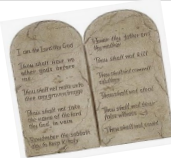 I am the Lord thy God
Thou shalt have no
other gods before
me.
Thou shalt not make unto
thee any graven image
Thou shalt not take
the name of the Lord
thy God in vain
Remember the Sabbath
to keep it holy
Honor thy father and
thy mother
Thou shalt not kill
Thou shalt not commit
adultery
Thou shalt not steal
Thou shalt not bear
false witness
Thou shalt not covet